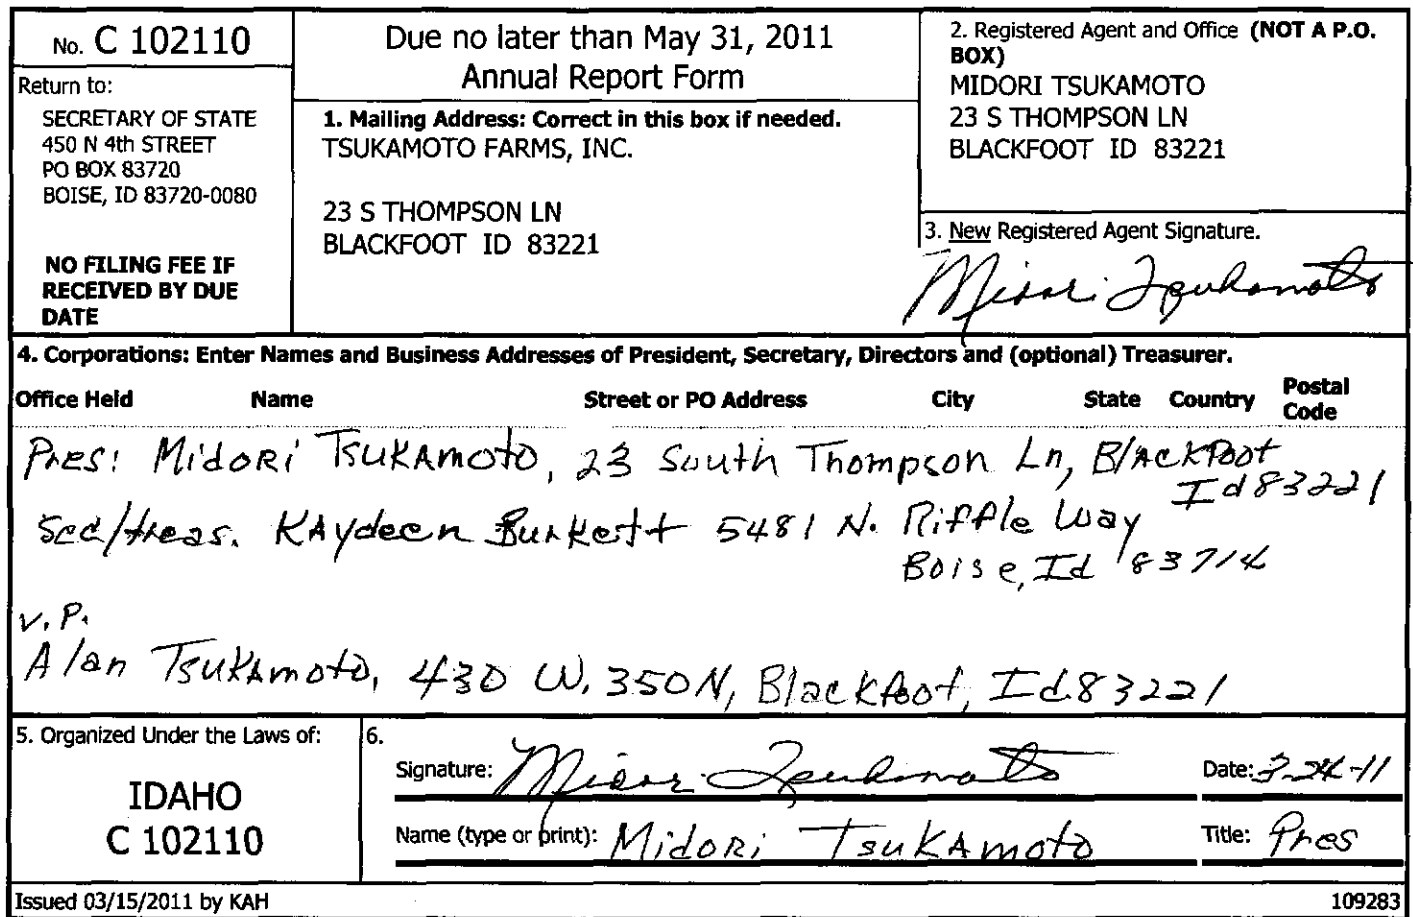 No. C 102110
Return to:
SECRETARY OF STATE
450 N 4th STREET
PO BOX 83720
BOISE, ID 83720-0080
NO FILING FEE IF
RECEIVED BY DUE
DATE
Due no later than May 31, 2011
Annual Report Form
1. Mailing Address: Correct in this box if needed.
TSUKAMOTO FARMS, INC.
23 S THOMPSON LN
BLACKFOOT ID 83221
2. Registered Agent and Office (NOT A P.O.
BOX)
MIDORI TSUKAMOTO
23 S THOMPSON LN
BLACKFOOT ID 83221
3. New Registered Agent Signature.
Midori Tsukamoto
4. Corporations: Enter Names and Business Addresses of President, Secretary, Directors and (optional) Treasurer.
Office Held Name Street or PO Address City State Country Postal Code
Pres: Midori Tsukamoto, 23 South Thompson Ln, Blackfoot
Id 83221
Sec/treas. Kaydeen Burkett 5481 N. Riffle Way
Boise, Id 83714
V.P.
Alan Tsukamoto, 430 W. 350 N, Blackfoot, Id 83221
5. Organized Under the Laws of:
IDAHO
C 102110
6.
Signature: Midori Tsukamoto Date: 3-24-11
Name (type or print): Midori Tsukamoto Title: Pres
Issued 03/15/2011 by KAH 109283